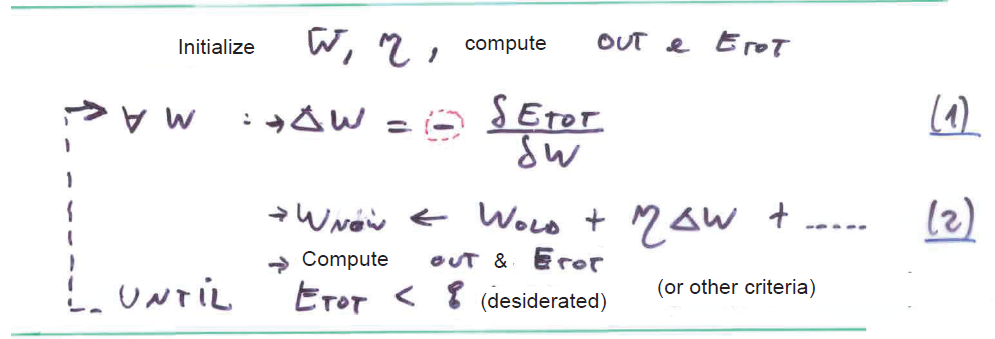 Initialize w̅, η, compute OUT e ETOT
∀ W : → ΔW = - δETOT / δW (1)
→ WNEW ← WOLD + η ΔW + ...... (2)
→ Compute OUT & ETOT
UNTIL ETOT < ε (desiderated) (or other criteria)